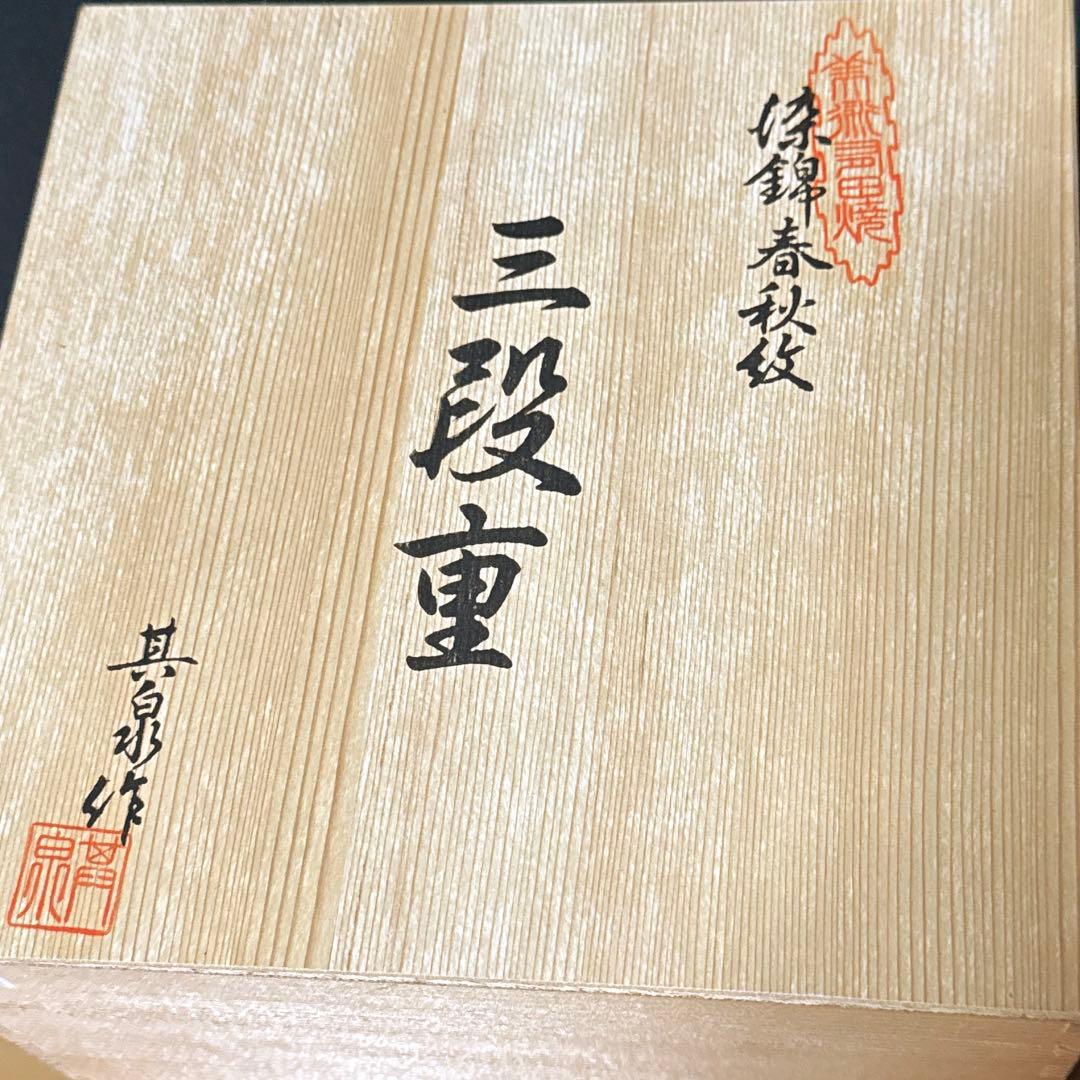 美術有田焼
染錦春秋紋
三段重
其泉作
其泉